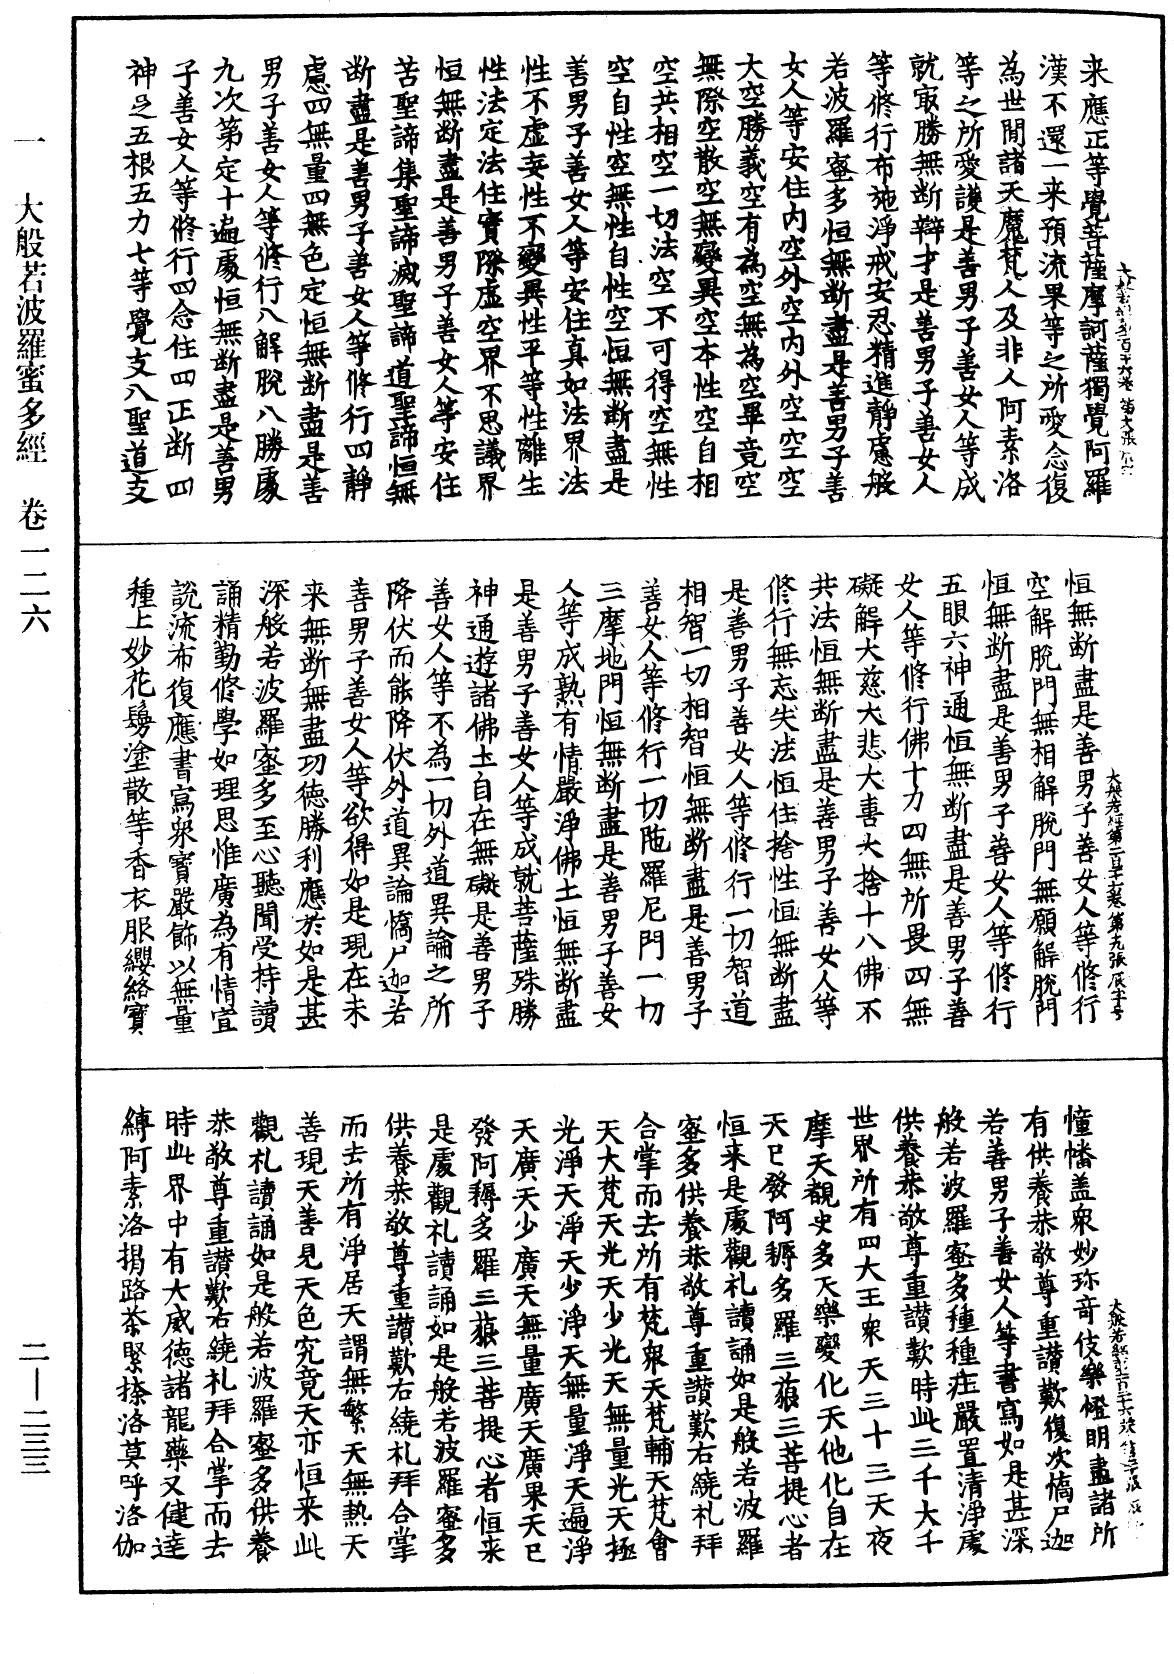 来應正等覺菩薩摩訶薩獨覺阿羅
漢不還一来預流果等之所愛念復
為世間諸天魔梵人及非人阿素洛
等之所愛護是善男子善女人等成
就㝡勝無断辯才是善男子善女人
等修行布施淨戒安忍精進靜慮般
若波羅蜜多恒無断盡是善男子善
女人等安住內空外空內外空空空
大空勝義空有為空無為空畢竟空
無際空散空無變異空本性空自相
空共相空一切法空不可得空無性
空自性空無性自性空恒無断盡是
善男子善女人等安住真如法界法
性不虛妄性不變異性平等性離生
性法定法住實際虛空界不思議界
恒無断盡是善男子善女人等安住
苦聖諦集聖諦滅聖諦道聖諦恒無
断盡是善男子善女人等修行四靜
慮四無量四無色定恒無断盡是善
男子善女人等修行八解脫八勝處
九次第定十遍處恒無断盡是善男
子善女人等修行四念住四正断四
神足五根五力七等覺支八聖道支
大般若經第一百二十六卷 第九張 辰字号
恒無断盡是善男子善女人等修行
空解脫門無相解脫門無願解脫門
恒無断盡是善男子善女人等修行
五眼六神通恒無断盡是善男子善
女人等修行佛十力四無所畏四無
礙解大慈大悲大喜大捨十八佛不
共法恒無断盡是善男子善女人等
修行無忘失法恒住捨性恒無断盡
是善男子善女人等修行一切智道
相智一切相智恒無断盡是善男子
善女人等修行一切陁羅尼門一切
三摩地門恒無断盡是善男子善女
人等成熟有情嚴淨佛土恒無断盡
是善男子善女人等成就菩薩殊勝
神通遊諸佛土自在無礙是善男子
善女人等不為一切外道異論之所
降伏而能降伏外道異論憍尸迦若
善男子善女人等欲得如是現在未
来無断無盡功德勝利應於如是甚
深般若波羅蜜多至心聽聞受持讀
誦精勤修學如理思惟廣為有情宣
說流布復應書寫衆寶嚴飾以無量
種上妙花鬘塗散等香衣服纓絡寶
幢幡盖衆妙珎奇伎樂燈明盡諸所
有供養恭敬尊重讚歎復次憍尸迦
若善男子善女人等書寫如是甚深
般若波羅蜜多種種庄嚴置清淨處
供養恭敬尊重讚歎時此三千大千
世界所有四大王衆天三十三天夜
摩天覩史多天樂變化天他化自在
天已發阿耨多羅三藐三菩提心者
恒来是處觀礼讀誦如是般若波羅
蜜多供養恭敬尊重讚歎右繞礼拜
合掌而去所有梵衆天梵輔天梵會
天大梵天光天少光天無量光天極
光淨天淨天少淨天無量淨天遍淨
天廣天少廣天無量廣天廣果天已
發阿耨多羅三藐三菩提心者恒来
是處觀礼讀誦如是般若波羅蜜多
供養恭敬尊重讚歎右繞礼拜合掌
而去所有淨居天謂無繁天無熱天
善現天善見天色究竟天亦恒来此
觀礼讀誦如是般若波羅蜜多供養
恭敬尊重讚歎右繞礼拜合掌而去
時此界中有大威德諸龍藥叉健達
縛阿素洛揭路荼緊捺洛莫呼洛伽
一 大般若波羅蜜多經 卷一二六
二—二三三